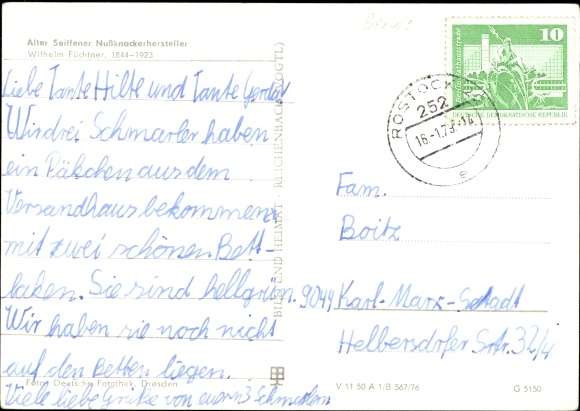 Alter Seiffener Nußknackerhersteller
Wilhelm Füchtner, 1844–1923
Liebe Tante Hilte und Tante Gerda!
Wir drei Schmarler haben
ein Päkchen aus dem
Versandhaus bekommen
mit zwei schönen Bett-
laken. Sie sind hellgrün.
Wir haben sie noch nicht
auf den Betten liegen.
Viele liebe Grüße von euern 3 Schmarlern
Foto: Deutsche Fotothek, Dresden
BILD UND HEIMAT REICHENBACH (VOGTL)
10
DEUTSCHE DEMOKRATISCHE REPUBLIK
ROSTOCK
252
e
Fam.
Boitz
9044 Karl-Marx-Stadt
Helbersdorfer Str. 32/4
V 11 50 A 1/B 567/76
G 5150